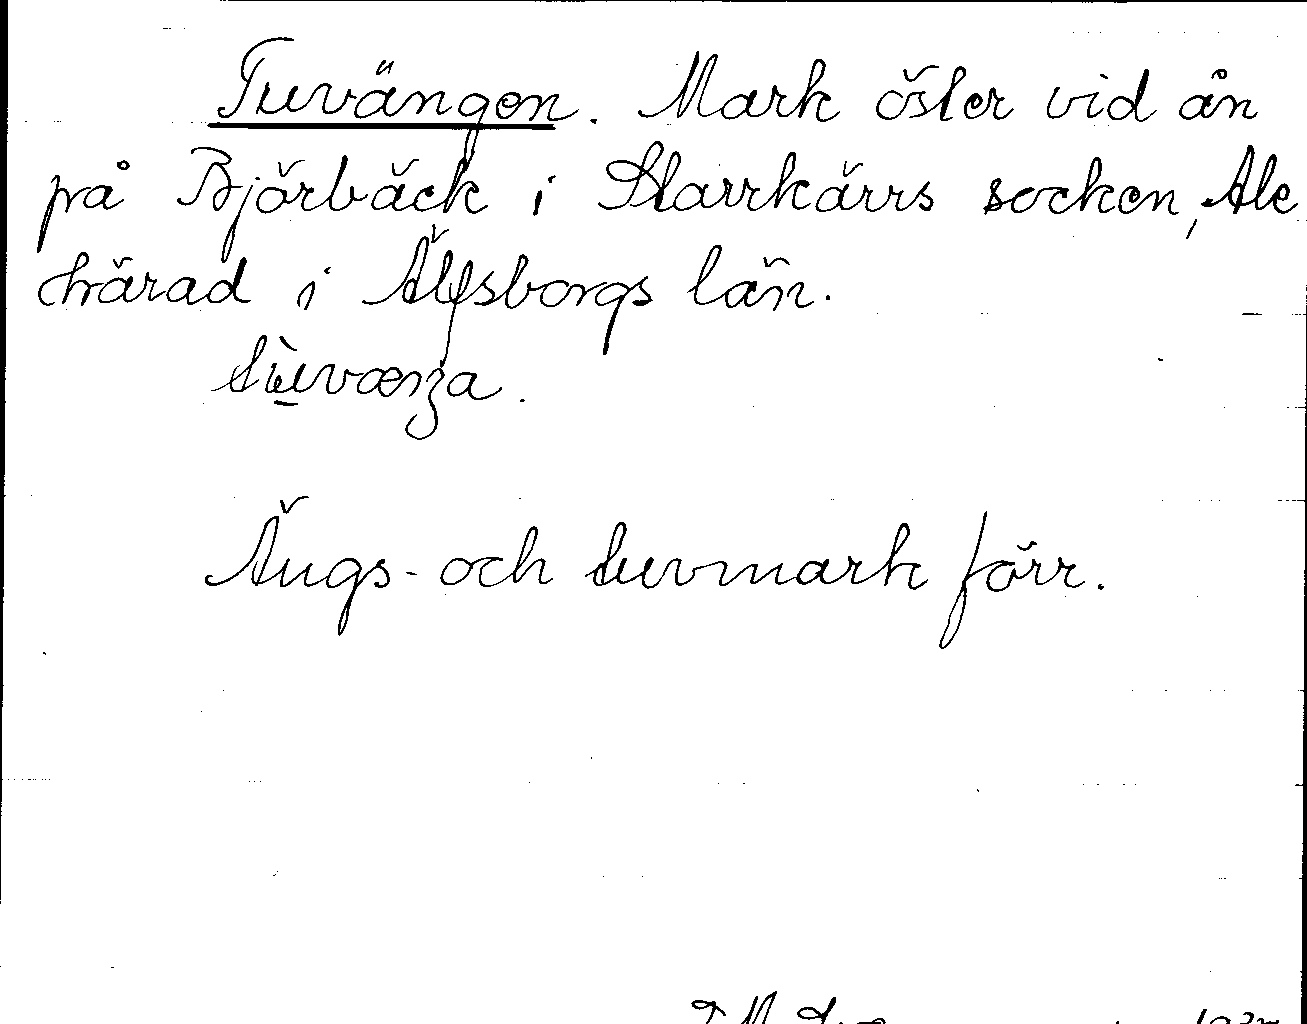 Tuvängen. Mark öster vid ån
på Björbäck i Starrkärrs socken, Ale
härad i Älfsborgs län.
tùvænga.
Ängs- och tuvmark förr.